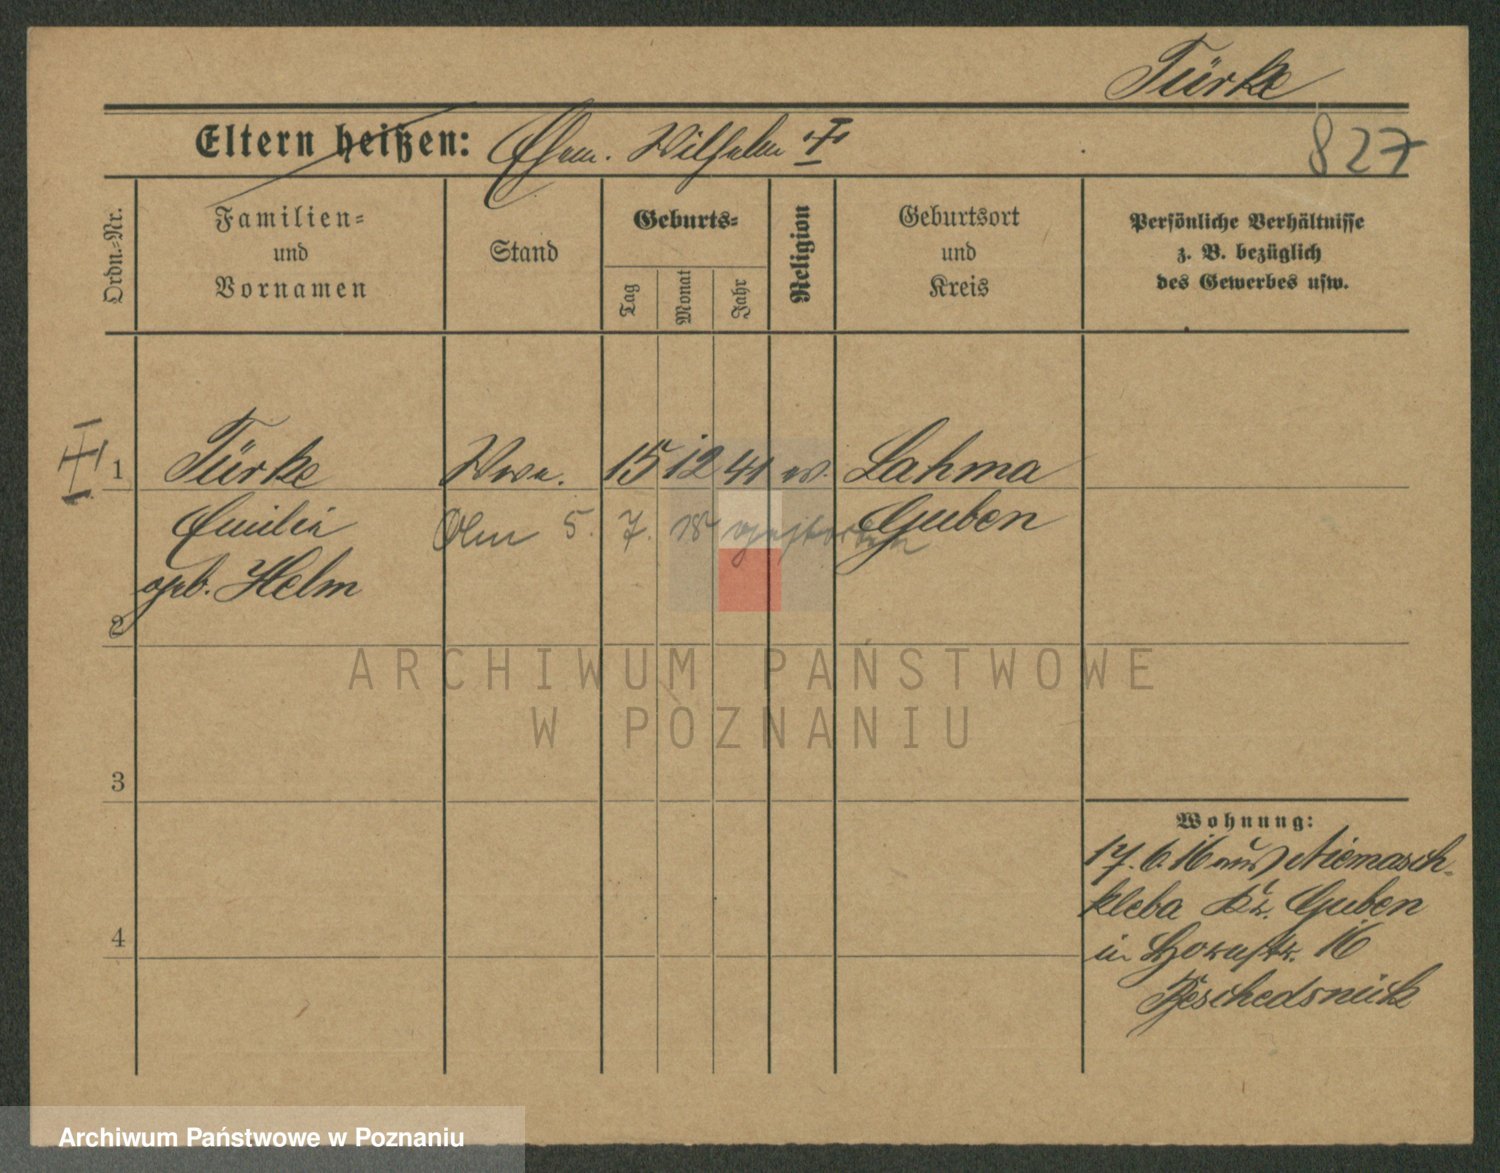 Türke
Eltern heißen: Ehem. Wilhelm
827
Ordn.-Nr.
Familien-
und
Vornamen
Stand
Geburts-
Tag
Monat
Jahr
Religion
Geburtsort
und
Kreis
Persönliche Verhältnisse
z. B. bezüglich
des Gewerbes usw.
1 Türke Wwe. 15 12 41 ev. Lahma
Emilie 5. 7. 18 gestorben Guben
geb. Helm
2
ARCHIWUM PAŃSTWOWE
W POZNANIU
3
Wohnung:
17. 6. 16 aus Niemasch-
kleba Kr. Guben
4
in 16
Archiwum Państwowe w Poznaniu